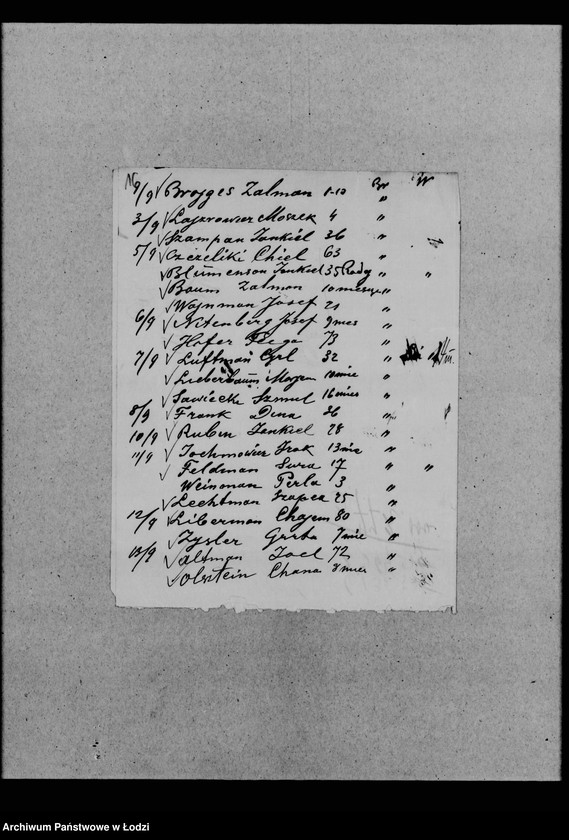 2/9 Brojges Zalman
3/9 Lajzrowicz Moszek 4 "
Szampan Jankiel 36 "
5/9 Czczeliki Chiel 63 "
Blumenson Jankiel 35 Rady " "
Baum Zalman 10 miesięc "
Wajnman Josef 21 "
6/9 Nitenberg Josef 9 mies "
Hofer Fega 73 "
7/9 Luftman Gol 32 "
Lieberbaum "
Sawiecki Szmul 16 mies "
8/9 Frank Dina 36 "
10/9 Rubin Jankiel 28 "
11/9 Jochmowicz Izak 13 mie "
Feldman Sura 17 " "
Weinman Perla 3 "
Lechtman 25 "
12/9 Liberman Chajem 80 "
Zysler 7 mie "
13/9 Altman Joel 72 "
Olsztein Chana 8 mies "
Archiwum Państwowe w Łodzi